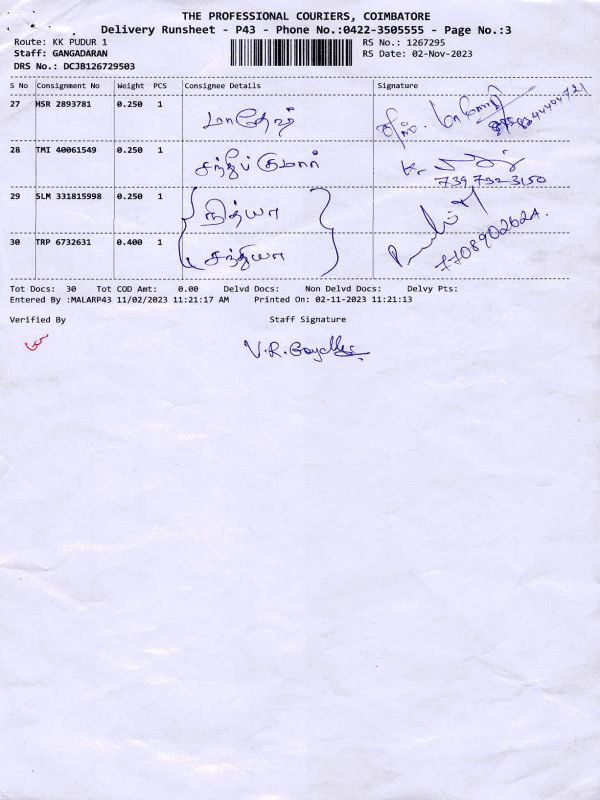 THE PROFESSIONAL COURIERS, COIMBATORE
Delivery Runsheet - P43 - Phone No.:0422-3505555 - Page No.:3
Route: KK PUDUR 1 RS No.: 1267295
Staff: GANGADARAN RS Date: 02-Nov-2023
DRS No.: DCJB126729503
S No Consignment No Weight PCS Consignee Details Signature
27 HSR 2893781 0.250 1 மாதேஷ்
28 TMI 40061549 0.250 1 சந்தீப் குமார்
7397323150
29 SLM 331815998 0.250 1 நித்யா
30 TRP 6732631 0.400 1 சந்தியா
Tot Docs: 30 Tot COD Amt: 0.00 Delvd Docs: Non Delvd Docs: Delvy Pts:
Entered By :MALARP43 11/02/2023 11:21:17 AM Printed On: 02-11-2023 11:21:13
Verified By Staff Signature
V.R.